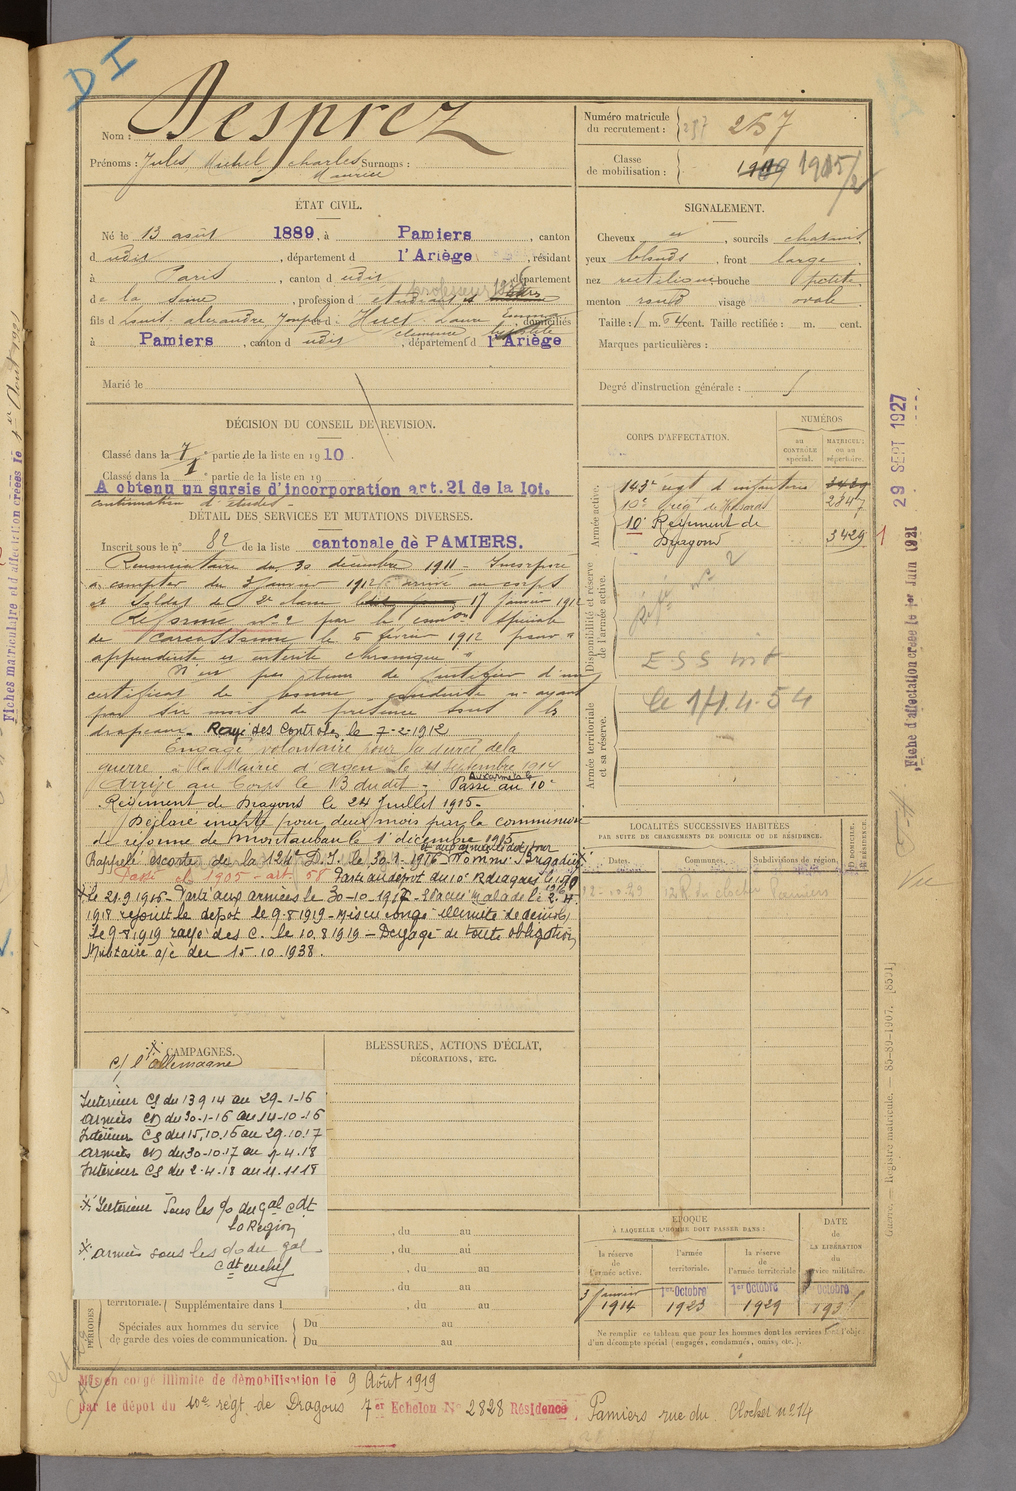 DI
Nom : Desprez
Prénoms : Jules, Michel, Charles Surnoms :
Maurice
Numéro matricule
du recrutement : 257 267
Classe
de mobilisation : 1909 1915/2
ÉTAT CIVIL.
Né le 13 août 1889, à Pamiers, canton
d udit, département d l'Ariège, résidant
à Paris, canton d udit, département
de la Seine, profession d étudiant
professeur
fils d Louis Alexandre Joseph et d Huct Laure Emma
Clémence domiciliés
à Pamiers, canton d udit, département d l'Ariège
Marié le
SIGNALEMENT.
Cheveux, sourcils chatains
yeux blonds, front large
nez rectiligne bouche petite
menton rond visage ovale
Taille : 1 m. 64 cent. Taille rectifiée : m. cent.
Marques particulières :
Degré d'instruction générale : 5
DÉCISION DU CONSEIL DE RÉVISION.
Classé dans la 7e partie de la liste en 1910.
Classé dans la 1 e partie de la liste en 19
A obtenu un sursis d'incorporation art. 21 de la loi.
continuation d'études -
DÉTAIL DES SERVICES ET MUTATIONS DIVERSES.
Inscrit sous le n° 82 de la liste cantonale de PAMIERS.
du 30 décembre 1911 - Incorporé
à compter du 3 janvier 1912 arrivé au corps
et Soldat de 2e classe 17 janvier 1912
Réformé n° 2 par la spéciale
de Carcassonne le 5 février 1912 pour "
appendicite et entérite chronique "
N'est pas tenu de justifier d'un
certificat de bonne conduite n'ayant
pas six mois de présence sous les
drapeaux. Rayé des Controles le 7-2-1912
Engagé volontaire pour la durée de la
guerre à la Mairie d'Agen le 11 septembre 1914
Arrivé au Corps le 13 dudit - Passé au 10e
Aux armées le
Régiment de Dragons le 24 Juillet 1915 -
Déclaré inapte pour deux mois par la commission
de réforme de Montauban le 1er décembre 1915
Rappelé escorte de la 124e D.I. le 30-1-1916 Nommé Brigadier
Passé cl 1905 - art. 58 Parti au dépot du 10e R dragons le 15-10
le 21.9.1915 - Parti aux armées le 30-10-1917 - Evacué Malade le 2.4.
1918 rejoint le dépot le 9-8-1919 - Mis en congé illimité de démob
le 9-8-1919 rayé des C. le 10.8.1919 - Dégagé de toute obligation
Militaire a/c du 15.10.1938.
CORPS D'AFFECTATION.
NUMÉROS
au
CONTRÔLE
spécial.
MATRICULE
ou au
répertoire.
Armée active.
143e regt d'infanterie 3439
10e Régt de Hussards 2847
10e Régiment de
Dragons 3429
Disponibilité et réserve
de l'armée active.
Réfé n° 2
E S S int
le 1/1.4.54
Armée territoriale
et sa réserve.
LOCALITÉS SUCCESSIVES HABITÉES
PAR SUITE DE CHANGEMENTS DE DOMICILE OU DE RÉSIDENCE.
Dates. Communes. Subdivisions de région. DOMICILE RÉSIDENCE
12-10-29 12 R. du clocher Pamiers
CAMPAGNES.
c/ l'allemagne
BLESSURES, ACTIONS D'ÉCLAT,
DÉCORATIONS, ETC.
Intérieur CS du 13 9 14 au 29-1-16
Armées CD du 30-1-16 au 14-10-16
Intérieur CS du 15.10.16 au 29.10.17
Armées CD du 30-10-17 au 1-4-18
Intérieur CS du 2-4-18 au 11.11.18
Intérieur Sous les o/o du gal cdt
la Region
Armées sous les o/o du gal
cdt en chef
, du au
, du au
, du au
, du au
PÉRIODES
territoriale. Supplémentaire dans l , du au
Spéciales aux hommes du service
de garde des voies de communication.
Du au
Du au
ÉPOQUE
À LAQUELLE L'HOMME DOIT PASSER DANS :
la réserve
de
l'armée active.
l'armée
territoriale.
la réserve
de
l'armée territoriale
DATE
de
LA LIBÉRATION
du
service militaire.
3 janvier 1914
1er Octobre 1923
1er Octobre 1929
Octobre 193
Ne remplir ce tableau que pour les hommes dont les services font l'objet
d'un décompte spécial (engagés, condamnés, omis, etc.).
Mis en congé illimité de démobilisation le 9 Août 1919
par le dépot du 10e régt de Dragons 7er Echelon N° 2828 Résidence, Pamiers rue du Clocher n° 14
Fiches matriculaire et d'affectation créées le 1er Août 1921
Fiche d'affectation créée le 1er Juin 1921
29 SEPT 1927
Vu
Guerre. — Registre matricule. — 85-89-1907. [8591]